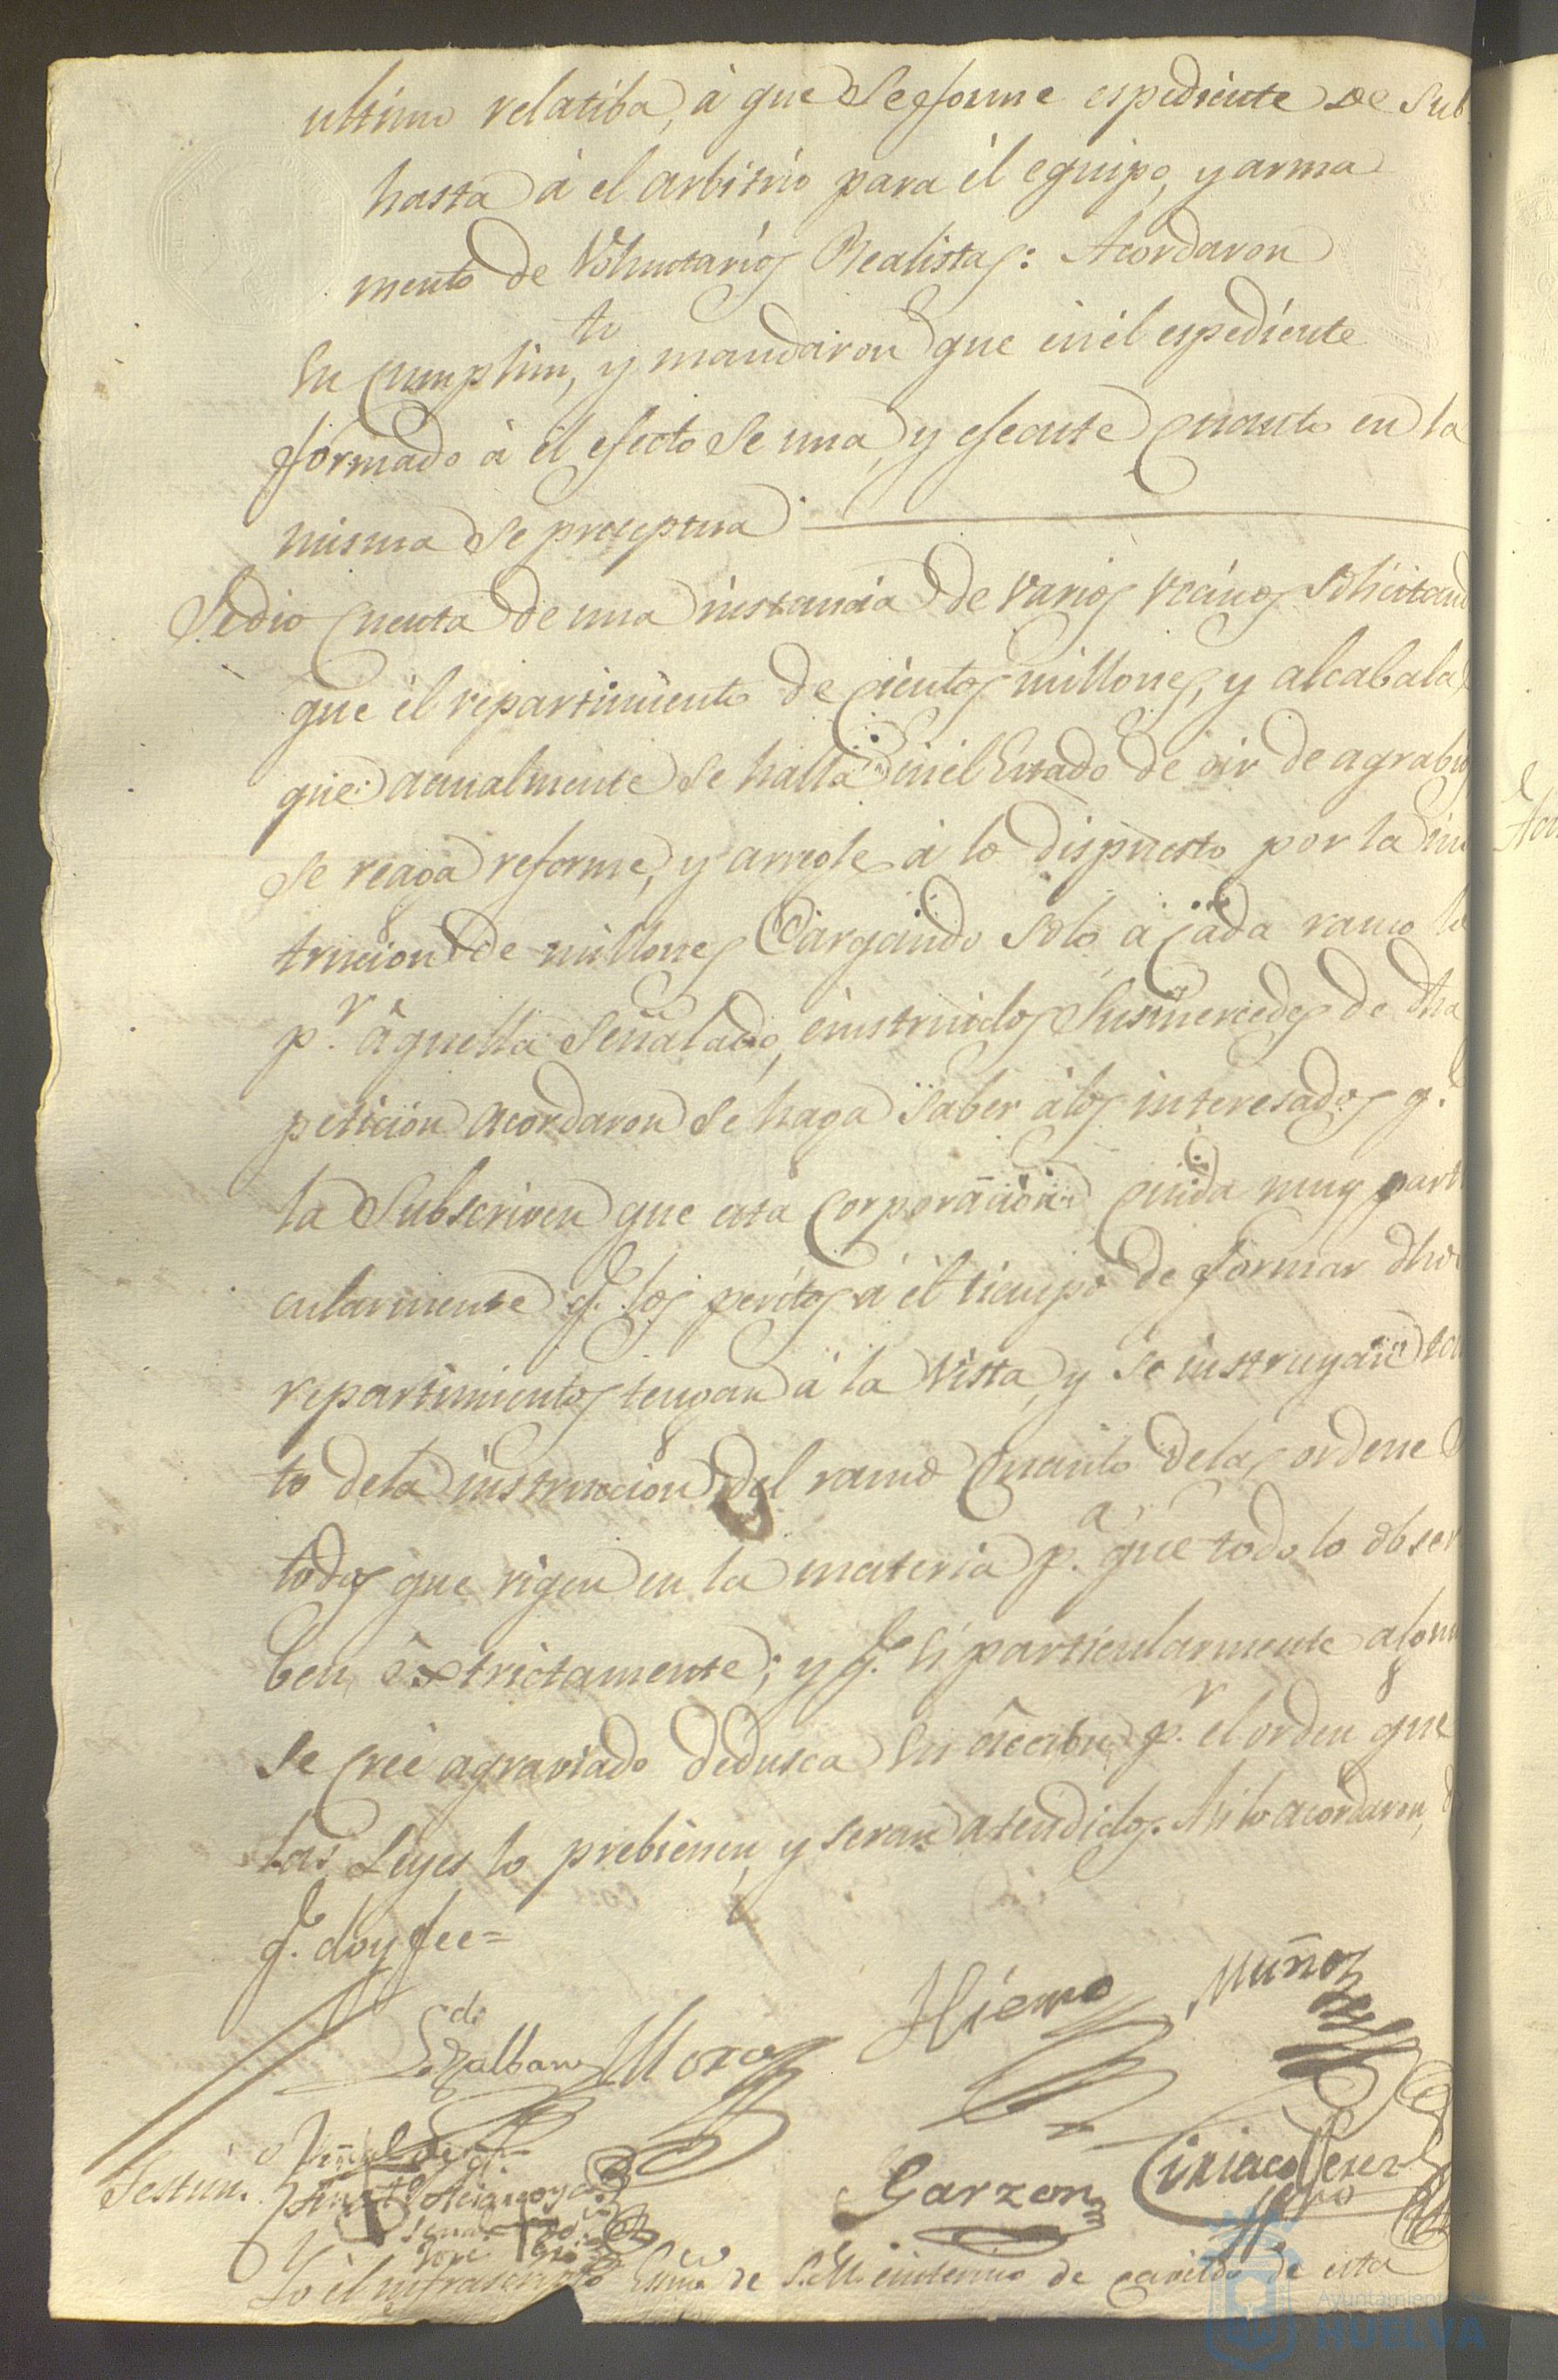 ultimo relatiba, à que Se forme espediente de Sub
hasta à el arbitrio para él equipo, y arma
mento de Voluntarios Realistas: Acordaron
Su Cumplim.to, y mandaron que en él espediente
formado à él efecto Se una, y ejecute Cuanto en la
misma Se preceptua
Se dio Cuenta de una instancia de varios vecinos Solicitand
que él repartimiento de Cientos millones, y alcabalas
que actualmente Se halla en él Estado de oir de agrabios
Se reaga reforme, y arregle à lo dispuesto por la ins
truccion de millones Cargando Solo à Cada ramo lo
p.r àquella Señalado, é instruidos Susmercedes de dha
peticion acordaron Se haga Saber à los interesados q.e
la Subscriven que esta Corporacion Cuida muy parti
cularmente q.e los peritos à él tiempo de formar dhos
repartimientos tengan à la vista, y Se instruyan tan
to dela instruccion del ramo Cuanto delas ordenes
todas que rigen en la materia p.a que todo lo obser
ben extrictamente; y q.e Si particularmente alguno
Se Creé agraviado dedusca Su accion p.r el orden que
las Leyes lo prebienen, y seran atendidos. Asi lo acordaron, d
q.e doy fee=
Moro
Hierro
Muñoz
Garzon
Ciriaco Perez
Señal de
Señal de
José
Yo él infrascripto Essno de S.M. é interino de cavildo de esta
Ayuntamiento de
HUELVA